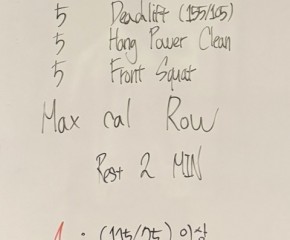 5 Deadlift (155/105)
5 Hang Power Clean
5 Front Squat
Max cal Row
Rest 2 MIN
1 : (115/75) 이상